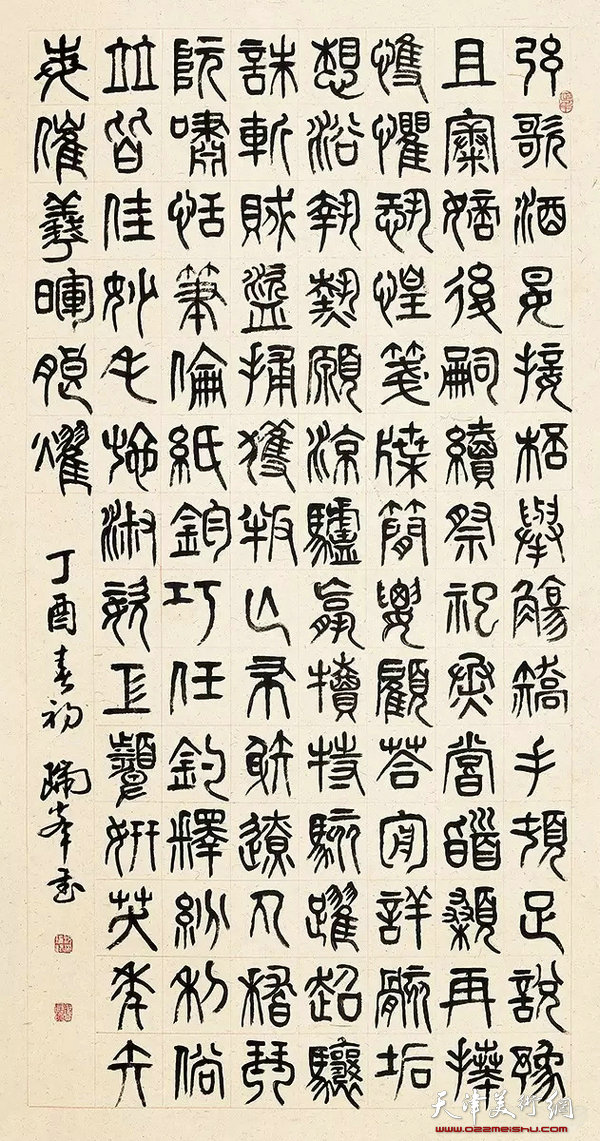 弦歌酒宴接杯舉觴矯手頓足說豫
且康嫡後嗣續祭祀烝嘗稽顙再拜
悚懼恐惶箋牒簡要顧答審詳骸垢
想浴執熱願涼驢騾犢特駭躍超驤
誅斬賊盜捕獲叛亡布射遼丸嵇琴
阮嘯恬筆倫紙鈞巧任釣釋紛利俗
並皆佳妙毛施淑姿工顰妍笑年矢
每催羲暉朗燿
丁酉春初 瑞峯書
天津美術網
www.022meishu.com